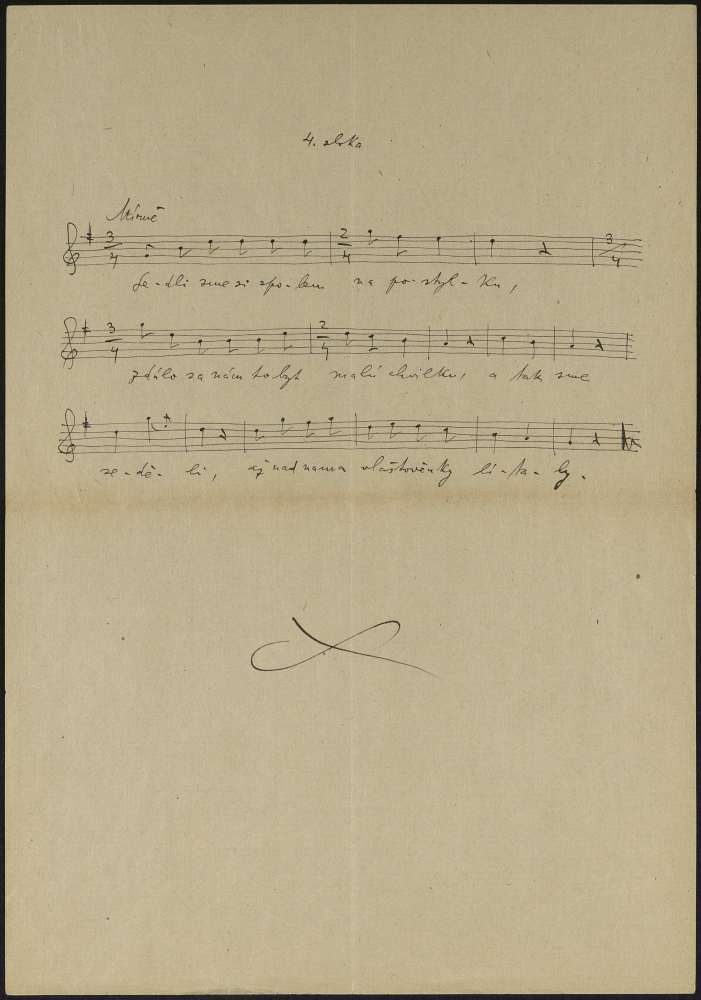 4. sloka
Mírně
3/4 2/4 3/4
Se-dli sme si spo-lem na po-styl-ku,
3/4 2/4
zdálo sa nám to byt malú chvilku, a tak sme
se-dě-li, až nad nama vlaštověnky lí-ta-ly.